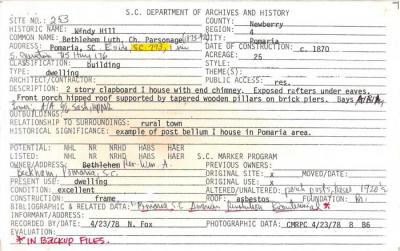 S.C. DEPARTMENT OF ARCHIVES AND HISTORY
SITE NO.: 253 COUNTY: Newberry
HISTORIC NAME: Windy Hill REGION: 4
COMMON NAME: Bethlehem Luth. Ch. Parsonage CITY: Pomaria
ADDRESS: Pomaria, SC E side S.C. 773, 1 mi DATE OF CONSTRUCTION: c. 1870
US Hwy 176 ACREAGE: 25
CLASSIFICATION: building STYLE:
TYPE: dwelling THEME(S):
ARCHITECT/CONTRACTOR: PUBLIC ACCESS: res.
DESCRIPTION: 2 story clapboard I house with end chimney. Exposed rafters under eaves.
Front porch hipped roof supported by tapered wooden pillars on brick piers. Bays
OUTBUILDINGS:
RELATIONSHIP TO SURROUNDINGS: rural town
HISTORICAL SIGNIFICANCE: example of post bellum I house in Pomaria area.
POTENTIAL: NHL NR NRHD HABS HAER
LISTED: NHL NR NRHD HABS HAER S.C. MARKER PROGRAM
OWNER/ADDRESS: Bethlehem PREVIOUS OWNERS:
Pomaria, S.C. ORIGINAL SITE: x MOVED/DATE:
PRESENT USE: dwelling ORIGINAL USE: x
CONDITION: excellent ALTERED/UNALTERED: porch posts, 1920's
CONSTRUCTION: frame ROOF: asbestos FOUNDATION:
BIBLIOGRAPHIC & RELATED DATA: Pomaria S.C. American Revolution Bicentennial *
INFORMANT/ADDRESS:
RECORDED BY/DATE: 4/23/78 N. Fox PHOTOGRAPHIC DATA: CMRPC 4/23/78 R B6
* IN BACKUP FILES.